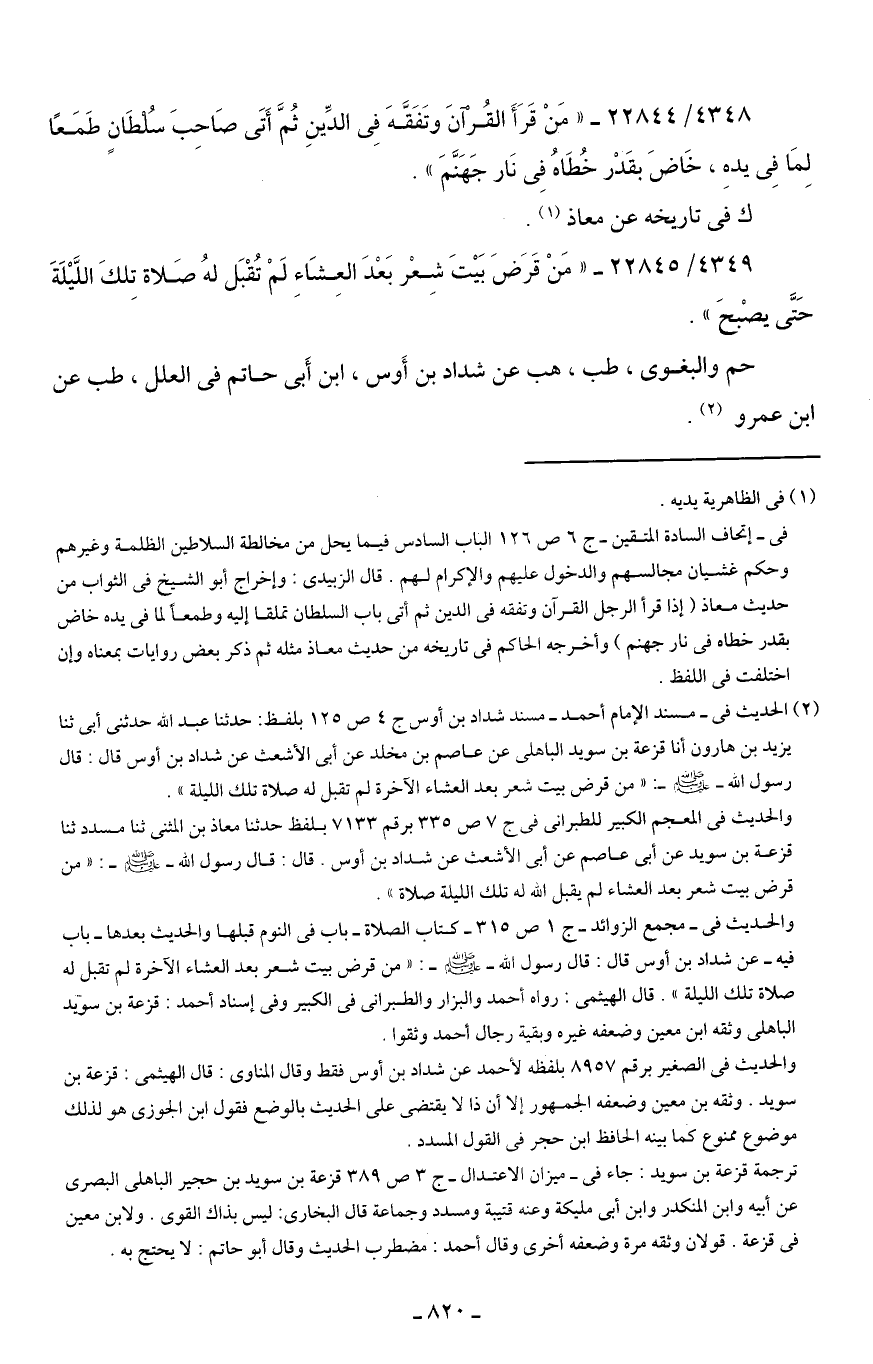 ٢٢٨٤٤/٤٣٤٨ ـ « مَنْ قَرَأَ القُرآنَ وتَفَقَّهَ فِى الدِّينِ ثُمَّ أَتَى صَاحِبَ سُلْطَانٍ طَمَعًا
لِمَا فِى يدهِ ، خَاضَ بقَدْرِ خُطَاهُ فِى نَارِ جهَنَّمَ » .
ك فى تاريخه عن معاذ (١) .
٢٢٨٤٥/٤٣٤٩ ـ « مَنْ قَرَضَ بَيْتَ شِعْرٍ بَعْدَ العِشَاءِ لَمْ تُقْبَل لهُ صَلاة تِلكَ اللَّيْلَةَ
حَتَّى يصْبحَ » .
حم والبغوى ، طب ، هب عن شداد بن أَوس ، ابن أَبى حاتم فى العلل ، طب عن
ابن عمرو (٢) .
(١) فى الظاهرية يديه .
فى ـ إتحاف السادة المتقين ـ ج ٦ ص ١٢٦ الباب السادس فيما يحل من مخالطة السلاطين الظلمة وغيرهم
وحكم غشيان مجالسهم والدخول عليهم والإكرام لهم . قال الزبيدى : وإخراج أبو الشيخ فى الثواب من
حديث معاذ ( إذا قرأ الرجل القرآن وتفقه فى الدين ثم أتى باب السلطان تملقا إليه وطمعاً لما فى يده خاض
بقدر خطاه فى نار جهنم ) وأخرجه الحاكم فى تاريخه من حديث معاذ مثله ثم ذكر بعض روايات بمعناه وإن
اختلفت فى اللفظ .
(٢) الحديث فى ـ مسند الإمام أحمد ـ مسند شداد بن أوس ج ٤ ص ١٢٥ بلفظ: حدثنا عبد الله حدثنى أبى ثنا
يزيد بن هارون أنا قزعة بن سويد الباهلى عن عاصم بن مخلد عن أبى الأشعث عن شداد بن أوس قال : قال
رسول الله ـ ﷺ ـ: « من قرض بيت شعر بعد العشاء الآخرة لم تقبل له صلاة تلك الليلة » .
والحديث فى المعجم الكبير للطبرانى فى ج ٧ ص ٣٣٥ برقم ٧١٣٣ بلفظ حدثنا معاذ بن المثنى ثنا مسدد ثنا
قزعة بن سويد عن أبى عاصم عن أبى الأشعث عن شداد بن أوس . قال : قال رسول الله ـ ﷺ ـ : « من
قرض بيت شعر بعد العشاء لم يقبل الله له تلك الليلة صلاة » .
والحديث فى ـ مجمع الزوائد ـ ج ١ ص ٣١٥ ـ كتاب الصلاة ـ باب فى النوم قبلها والحديث بعدها ـ باب
فيه ـ عن شداد بن أوس قال : قال رسول الله ـ ﷺ ـ : « من قرض بيت شعر بعد العشاء الآخرة لم تقبل له
صلاة تلك الليلة » . قال الهيثمى : رواه أحمد والبزار والطبرانى فى الكبير وفى إسناد أحمد : قزعة بن سويد
الباهلى وثقه ابن معين وضعفه غيره وبقية رجال أحمد وثقوا .
والحديث فى الصغير برقم ٨٩٥٧ بلفظه لأحمد عن شداد بن أوس فقط وقال المناوى : قال الهيثمى : قزعة بن
سويد . وثقه بن معين وضعفه الجمهور إلا أن ذا لا يقتضى على الحديث بالوضع فقول ابن الجوزى هو لذلك
موضوع ممنوع كما بينه الحافظ ابن حجر فى القول المسدد .
ترجمة قزعة بن سويد : جاء فى ـ ميزان الاعتدال ـ ج ٣ ص ٣٨٩ قزعة بن سويد بن حجير الباهلى البصرى
عن أبيه وابن المنكدر وابن أبى مليكة وعنه قتيبة ومسدد وجماعة قال البخارى: ليس بذاك القوى . ولابن معين
فى قزعة . قولان وثقه مرة وضعفه أخرى وقال أحمد : مضطرب الحديث وقال أبو حاتم : لا يحتج به .
ـ ٨٢٠ ـ